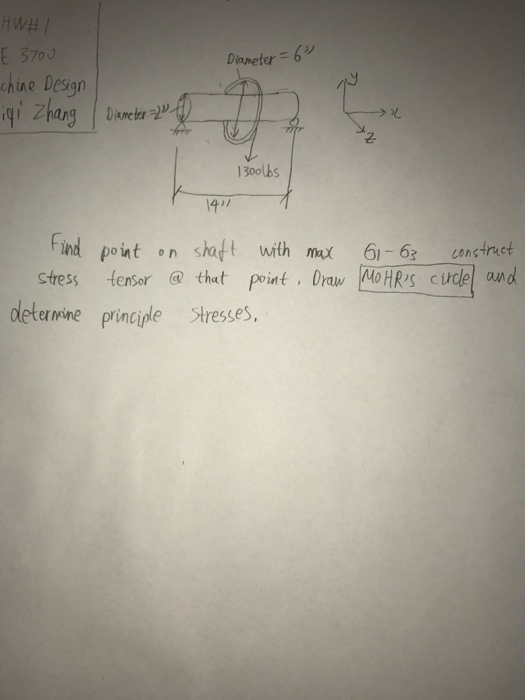 HW#1
E 3700
chine Design
iqi Zhang
Diameter = 6"
Diameter = 2"
y
x
z
1300lbs
14"
Find point on shaft with max σ1-σ3 construct
stress tensor @ that point. Draw MOHR'S circle and
determine principle stresses.